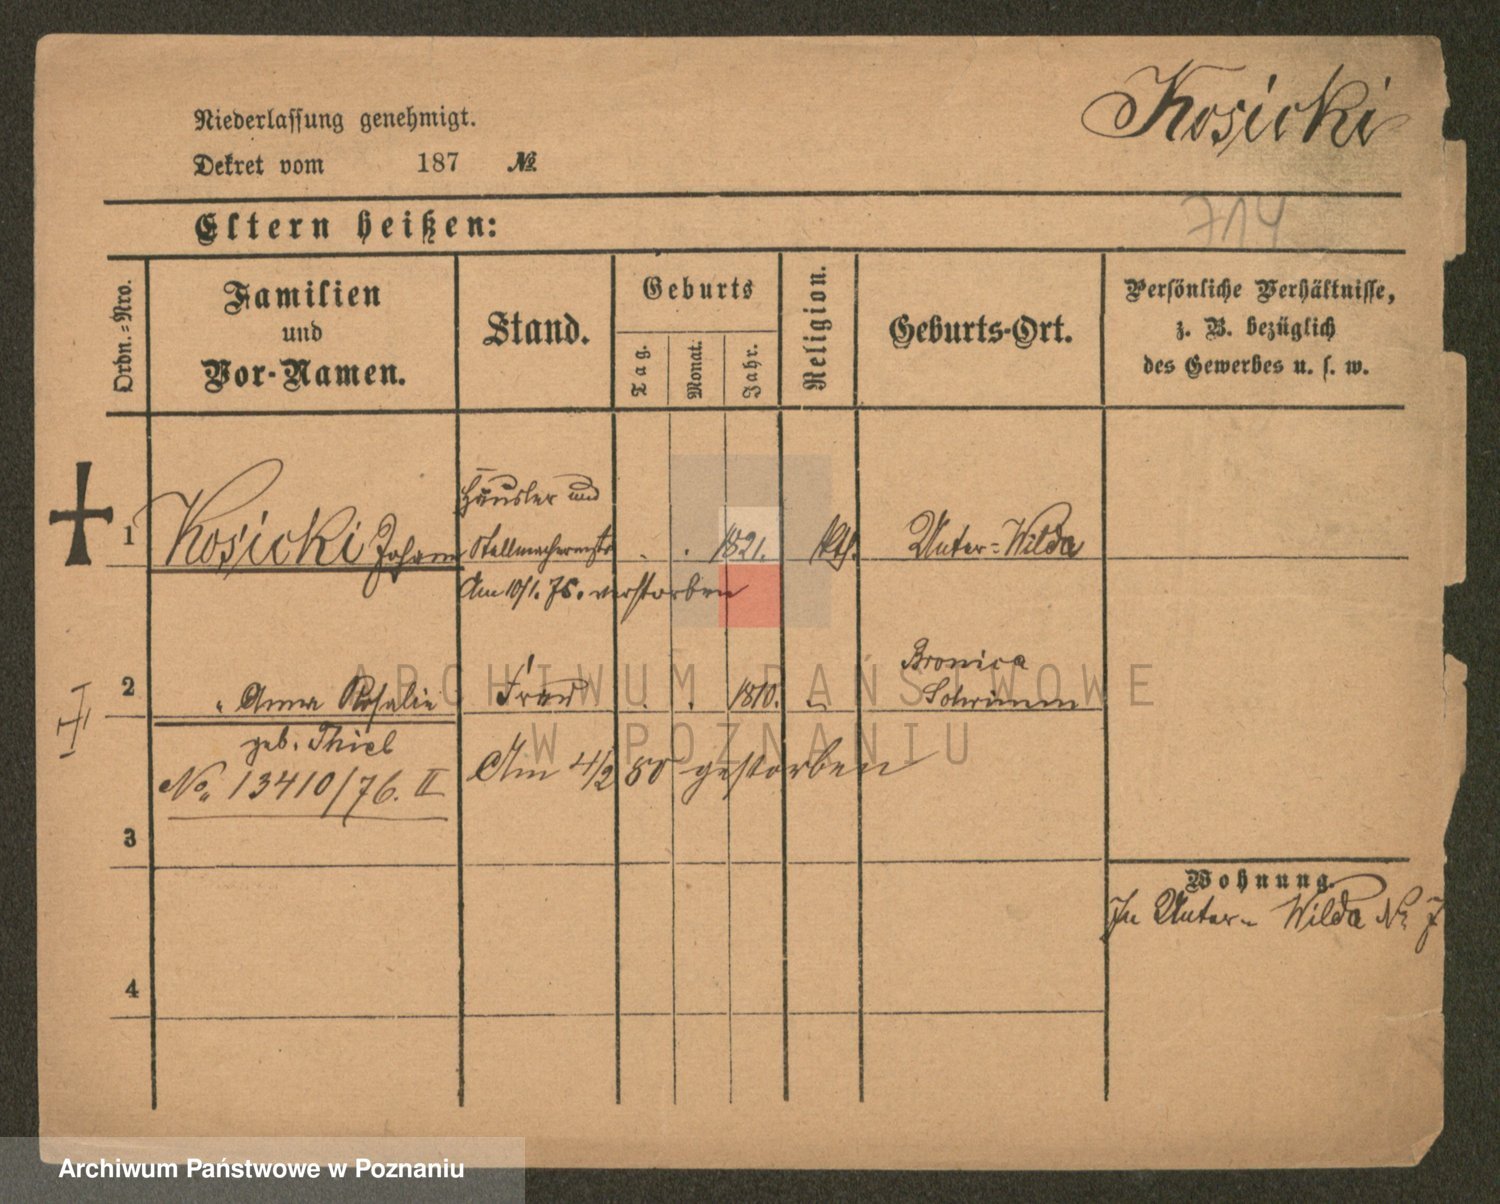 Kosicki
Niederlassung genehmigt.
Dekret vom 187 №
714
Eltern heißen:
Ordn.=Nro.
Familien
und
Vor-Namen.
Stand.
Geburts
Tag.
Monat.
Jahr.
Religion.
Geburts-Ort.
Persönliche Verhältnisse,
z. B. bezüglich
des Gewerbes u. s. w.
Häusler und
1 Kosicki Johann Stellmachermstr . . 1821. kth. Unter=Wilda
Am 10/1. 75. verstorben
Schrimm
2 " Anna Rosalie Frau . . 1810. "
geb. Thiel
Am 4/2 80 gestorben
No. 13410/76. II
3
Wohnung.
In Unter- Wilda No. 7
4
ARCHIWUM PAŃSTWOWE
W POZNANIU
Archiwum Państwowe w Poznaniu